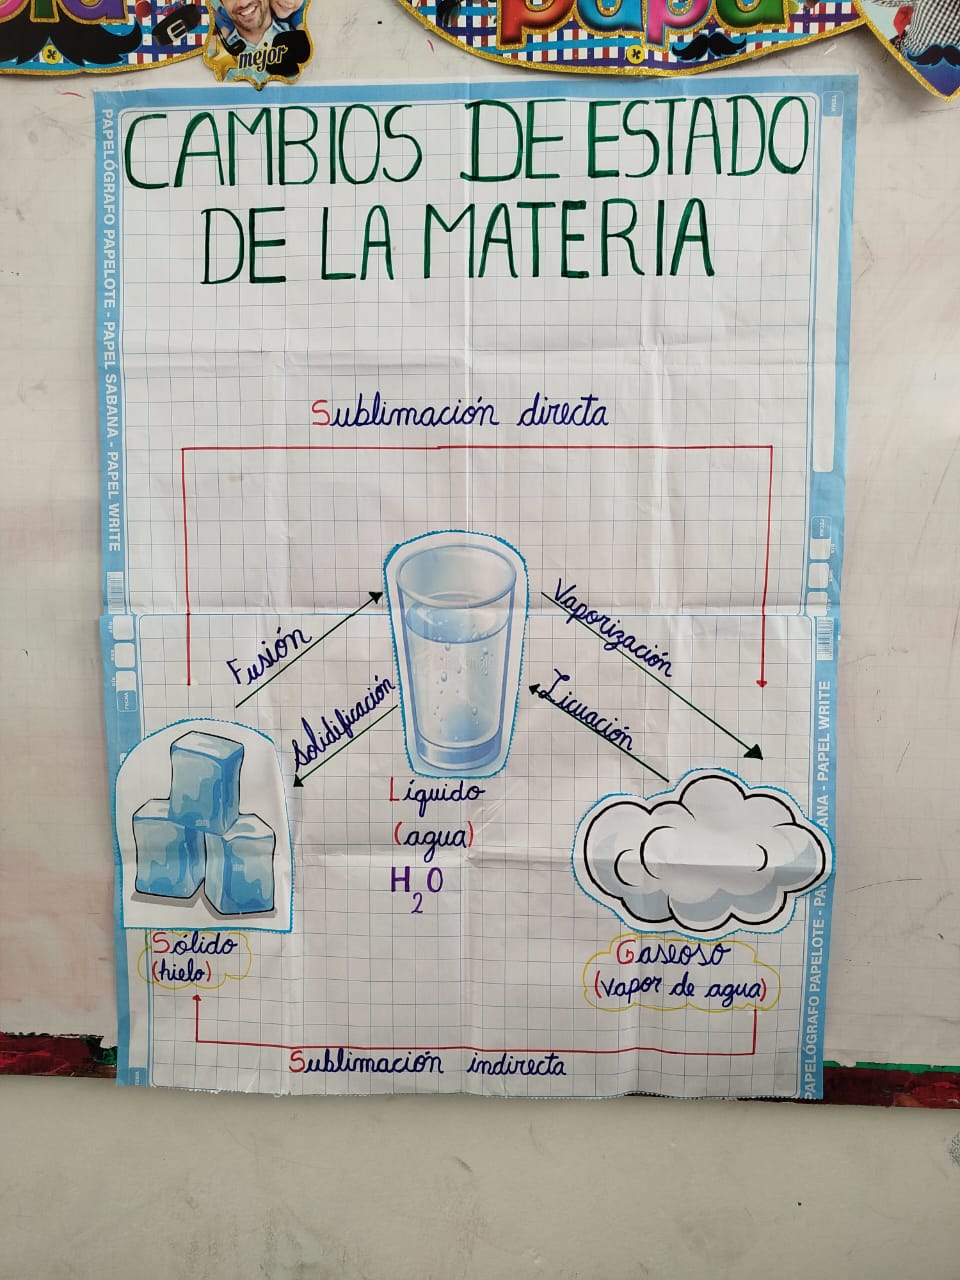 mejor
papá
CAMBIOS DE ESTADO
DE LA MATERIA
PAPELÓGRAFO PAPELOTE - PAPEL SABANA - PAPEL WRITE
Sublimación directa
Fusión
Solidificación
Vaporización
Licuación
Líquido
(agua)
H2O
Sólido
(hielo)
Gaseoso
(vapor de agua)
Sublimación indirecta
PAPELÓGRAFO PAPELOTE - PAP
ANA - PAPEL WRITE